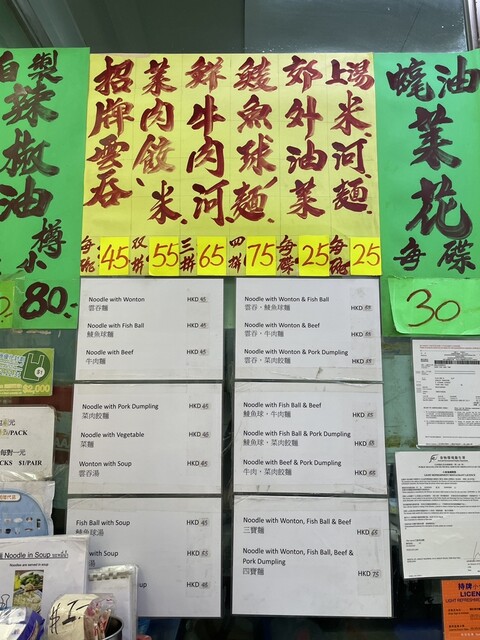 自製
辣
椒
油
樽
小
80.-
招牌雲吞
菜肉餃、米
鮮牛肉河
鯪魚球麵
郊外油菜
上湯米河麵
每碗 45
双拼 55
三拼 65
四拼 75
每碟 25
每碗 25
蠔油
菜
花
每碟
30
Noodle with Wonton HKD 45
雲吞麵
Noodle with Fish Ball HKD 45
鯪魚球麵
Noodle with Beef HKD 45
牛肉麵
Noodle with Pork Dumpling HKD 45
菜肉餃麵
Noodle with Vegetable HKD
菜麵
Wonton with Soup HKD 45
雲吞湯
Fish Ball with Soup HKD 45
鯪魚球湯
with Soup HKD
with Soup HKD
Noodle with Wonton & Fish Ball HKD
雲吞、鯪魚球麵
Noodle with Wonton & Beef HKD
雲吞、牛肉麵
Noodle with Wonton & Pork Dumpling HKD
雲吞、菜肉餃麵
Noodle with Fish Ball & Beef HKD
鯪魚球、牛肉麵
Noodle with Fish Ball & Pork Dumpling HKD
鯪魚球、菜肉餃麵
Noodle with Beef & Pork Dumpling HKD
牛肉、菜肉餃麵
Noodle with Wonton, Fish Ball & Beef
三寶麵 HKD 65
Noodle with Wonton, Fish Ball, Beef &
Pork Dumpling HKD 75
四寶麵
$2,000
/PACK
每對一元
CKS $1/PAIR
Noodle in Soup
Noodles are served in soup
持牌小
LICEN
LIGHT REFRESHME